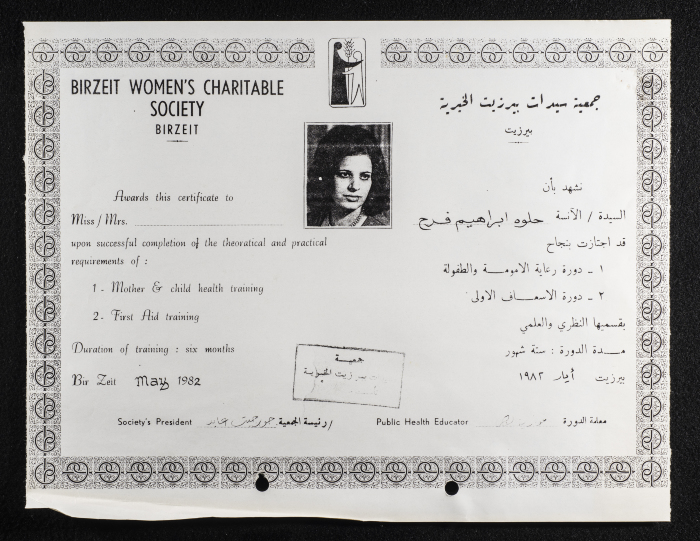 BIRZEIT WOMEN'S CHARITABLE
SOCIETY
BIRZEIT
Awards this certificate to
Miss / Mrs.
upon successful completion of the theoratical and practical
requirements of :
1 - Mother & child health training
2 - First Aid training
Duration of training : six months
Bir Zeit May 1982
Society's President
جمعية سيدات بيرزيت الخيرية
بيرزيت
نشهد بأن
السيدة / الآنسة حلوه ابراهيم فرح
قد اجتازت بنجاح
١ - دورة رعاية الامومة والطفولة
٢ - دورة الاسعاف الاولى
بقسميها النظري والعلمي
مدة الدورة : ستة شهور
بيرزيت أيار ١٩٨٢
جمعية
بيرزيت الخيرية
رئيسة الجمعية
Public Health Educator
معلمة الدورة